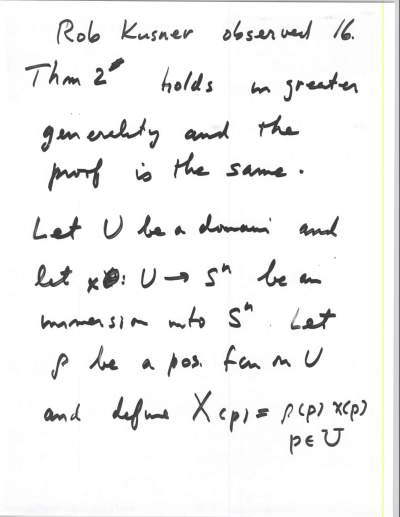 Rob Kusner observed 16.
Thm 2 holds in greater
generality and the
proof is the same.
Let U be a domain and
let x: U → Sⁿ be an
immersion into Sⁿ. Let
ρ be a pos. fcn on U
and define X(p) = ρ(p) x(p)
p ∈ U